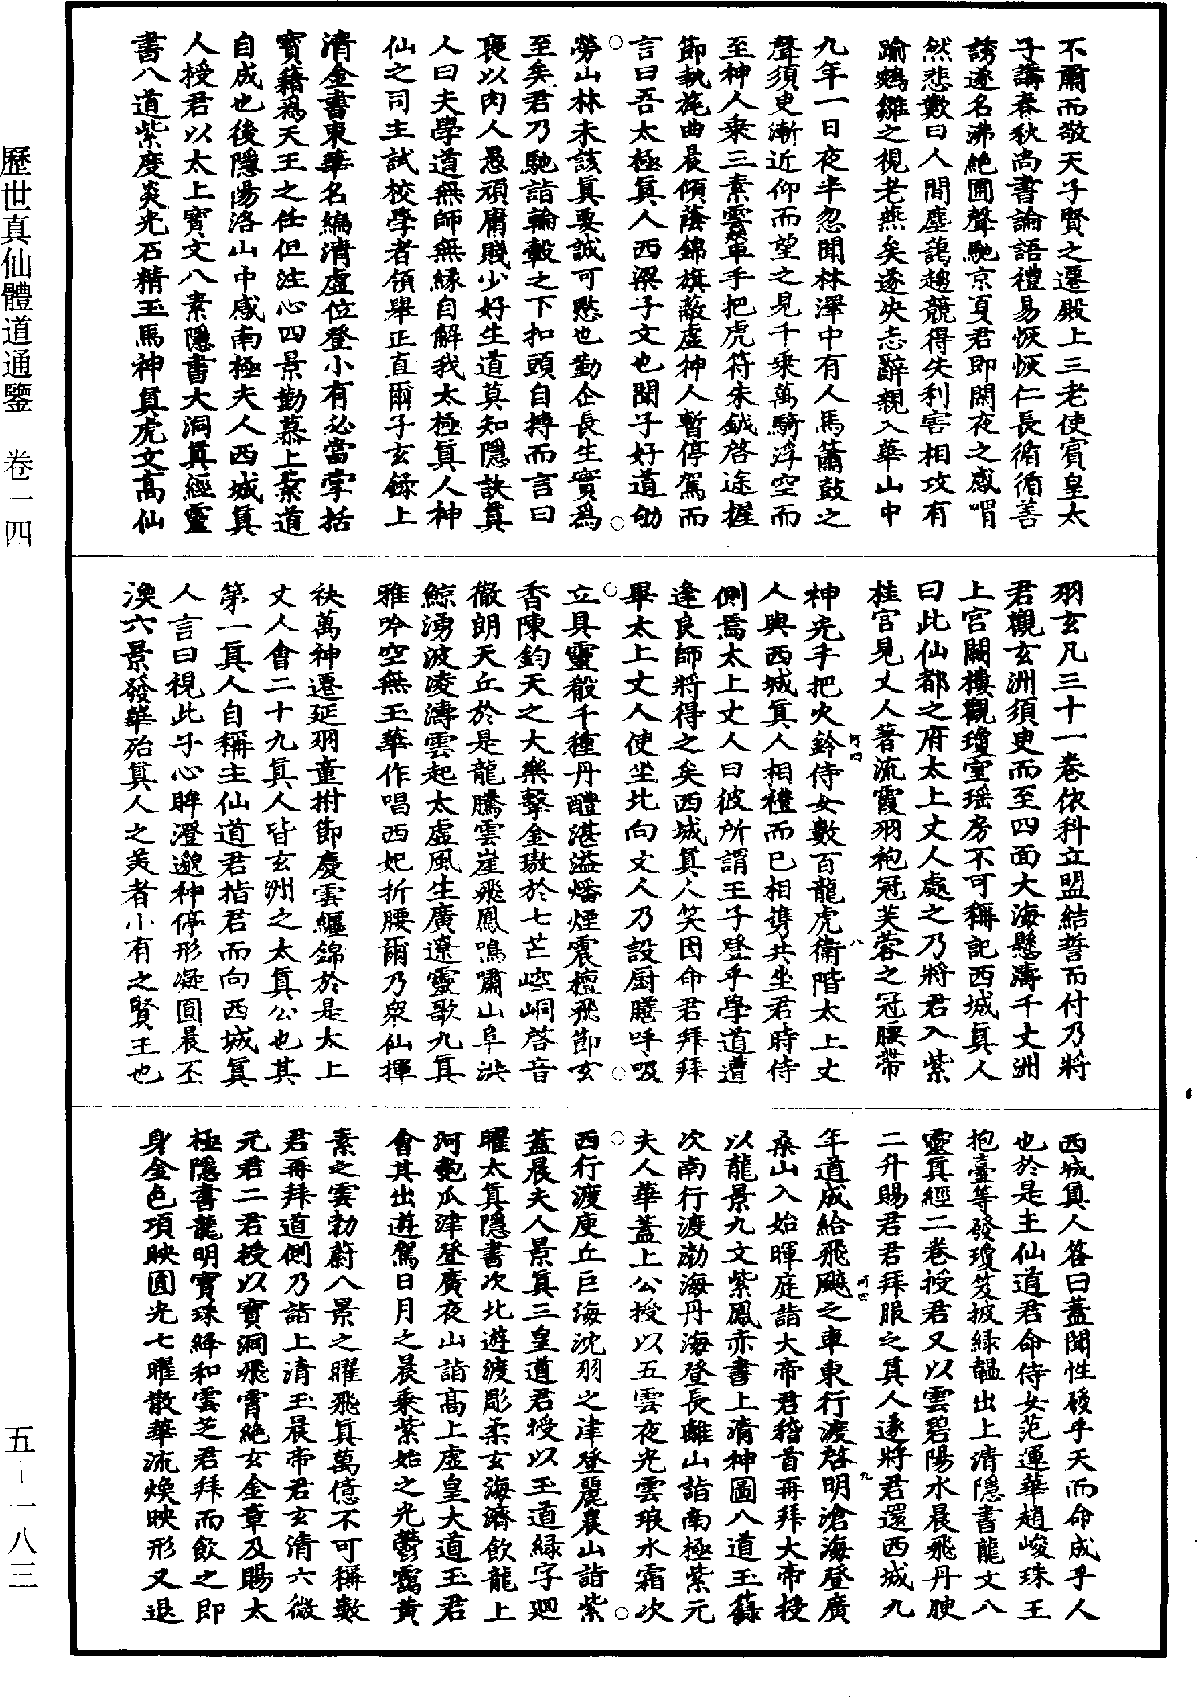 歷世真仙體道通鑒　卷一四
五–一八三
不肅而敬天子賢之遷殿上三老使賓皇太
子講春秋尚書論語禮易恢恢仁長循循善
誘遂名沸絕圃聲馳京夏君即閑夜之感喟
然悲歎曰人間塵藹趨競得失利害相攻有
踰鵷鶵之視老燕矣遂決志辭親入華山中
九年一日夜半忽聞林澤中有人馬簫鼓之
聲須臾漸近仰而望之見千乘萬騎浮空而
至神人乘三素雲輦手把虎符朱鉞啓途握
節執旄曲晨傾蔭錦旗蔽虛神人暫停駕而
言曰吾太極真人西梁子文也聞子好道劬
勞山林未該真要誠可愍也勤企長生實為
至矣君乃馳詣輪轂之下扣頭自搏而言曰
褒以肉人愚頑庸賤少好生道莫知隱訣真
人曰夫學道無師無緣自解我太極真人神
仙之司主試校學者領舉正直爾子玄錄上
清金書東華名編清虛位登小有必當掌括
寶籍為天王之任但注心四景勤慕上業道
自成也後隱陽洛山中感南極夫人西城真
人授君以太上寶文八素隱書大洞真經靈
書八道紫度炎光石精玉馬神真虎文高仙
羽玄凡三十一卷依科立盟結誓而付乃將
君觀玄洲須臾而至四面大海懸濤千丈洲
上宮闕樓觀瓊室瑶房不可稱記西城真人
曰此仙都之府太上丈人處之乃將君入紫
桂宮見丈人著流霞羽袍冠芙蓉之冠腰帶
神光手把火鈴侍女數百龍虎衛階太上丈
人與西城真人相禮而已相攜共坐君時侍
側焉太上丈人曰彼所謂王子登乎學道遭
逢良師將得之矣西城真人笑因命君拜拜
畢太上丈人使坐北向丈人乃設厨騰呼吸
立具靈殽千種丹醴湛溢燔煙震檀飛節玄
香陳鈞天之大樂擊金璈於七芒崆峒啓音
徹朗天丘於是龍騰雲崖飛鳳鳴嘯山阜洪
鯨湧波凌濤雲起太虛風生廣遼靈歌九真
雅吟空無玉華作唱西妃折腰爾乃衆仙揮
袂萬神遷延羽童拊節慶雲纏錦於是太上
丈人會二十九真人皆玄洲之太真公也其
第一真人自稱主仙道君指君而向西城真
人言曰視此子心眸澄邈神停形凝圓晨丕
渙六景發華殆真人之美者小有之賢王也
西城真人答曰蓋聞性發乎天而命成乎人
也於是主仙道君命侍女范運華趙峻珠王
抱臺等發瓊笈披綠韞出上清隱書龍文八
靈真經二卷授君又以雲碧陽水晨飛丹腴
二升賜君君拜服之真人遂將君還西城九
年道成給飛飈之車東行渡啓明滄海登廣
桑山入始暉庭詣大帝君稽首再拜大帝授
以龍景九文紫鳳赤書上清神圖八道玉籙
次南行渡渤海丹海登長離山詣南極紫元
夫人華蓋上公授以五雲夜光雲琅水霜次
西行渡庚丘巨海沈羽之津登麗農山詣紫
蓋晨夫人景真三皇道君授以玉道綠字迴
曜太真隱書次北遊渡彫柔玄海濟飲龍上
河匏瓜津登廣夜山詣高上虛皇大道玉君
會其出遊駕日月之晨乘紫始之光鬱靄黃
素之雲勃蔚八景之曜飛真萬億不可稱數
君再拜道側乃詣上清玉晨帝君玄清六微
元君二君授以寶洞飛霄絕玄金章及賜太
極隱書龍明寶珠絳和雲芝君拜而飲之即
身金色項映圓光七曜散華流煥映形又退
何四
八
何四
九